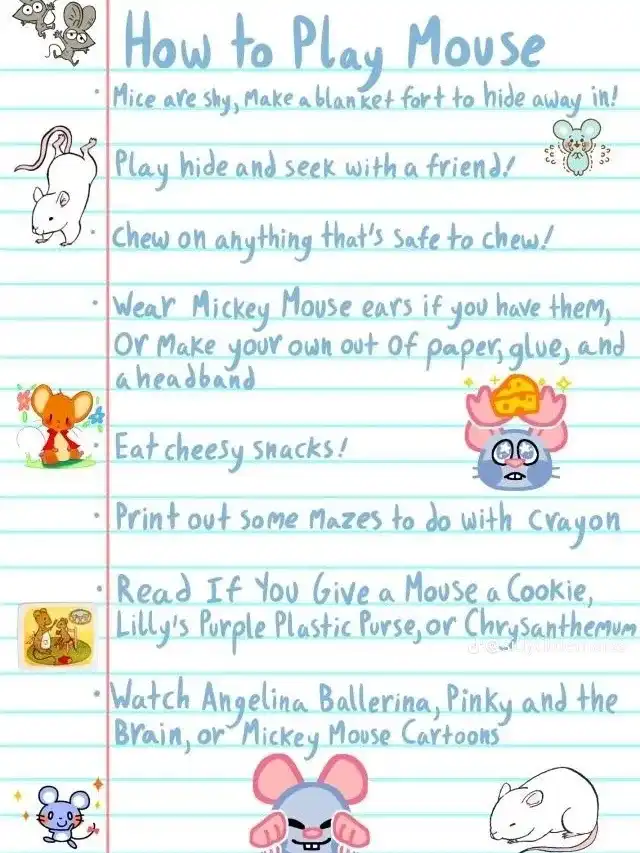 How to Play Mouse
• Mice are shy, Make a blanket fort to hide away in!
Play hide and seek with a friend!
• Chew on anything that's safe to chew!
• Wear Mickey Mouse ears if you have them,
Or Make your own out of paper, glue, and
a headband
• Eat cheesy snacks!
• Print out some mazes to do with crayon
• Read If You Give a Mouse a Cookie,
Lilly's Purple Plastic Purse, or Chrysanthemum
• Watch Angelina Ballerina, Pinky and the
Brain, or Mickey Mouse Cartoons